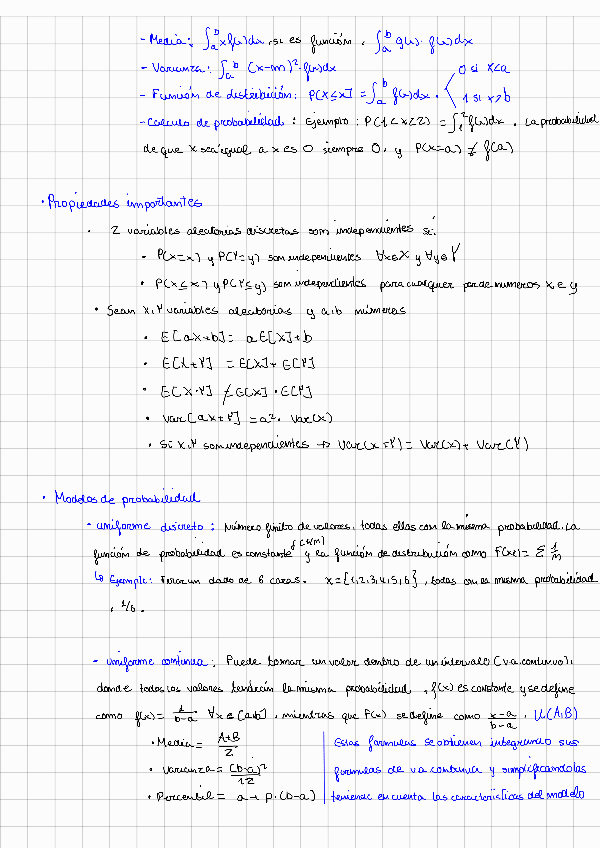 - Media: ∫ₐᵇ x f(x) dx, si es función, ∫ₐᵇ g(x) · f(x) dx
- Varianza: ∫ₐᵇ (x-m)² · f(x) dx
- Función de distribución: P(X≤x] = ∫ₐᵇ f(x) dx . < 0 si x<a
1 si x>b
- Calculo de probabilidad: Ejemplo: P(1<x<2) = ∫₁² f(x) dx. La probabilidad
de que X sea igual a x es 0 siempre 0, y P(X=a) ≠ f(a)
• Propiedades importantes
• 2 variables aleatorias discretas som independientes si:
• P(X=x) y P(Y=y) som independientes ∀x∈X y ∀y∈Y
• P(X≤x) y P(Y≤y) som independientes para cualquier par de numeros x e y
• Sean X, Y variables aleatorias y a, b números
• E[aX+b] = aE[X]+b
• E[X+Y] = E[X]+E[Y]
• E[X·Y] ≠ E[X]·E[Y]
• Var[ax+Y] = a² · Var(x)
• Si X, Y som independientes → Var(x+Y) = Var(x) + Var(Y)
• Modelos de probabilidad
- uniforme discreto: Número finito de valores, todas ellas con la misma probabilidad. La
función de probabilidad es constante f(1/M) y la función de distribución como F(x) = Σ 1/M
↳ Ejemplo: Tirar un dado de 6 caras. x={1,2,3,4,5,6}, todas con la misma probabilidad
, 1/6.
- uniforme continua: Puede tomar un valor dentro de un intervalo (v.a. continuo),
donde todos los valores tendrán la misma probabilidad, f(x) es constante y se define
como f(x) = 1/(b-a) ∀x∈[a,b], mientras que F(x) se define como (x-a)/(b-a). U(A,B)
• Media = (A+B)/2
• Varianza = (b-a)²/12
• Percentil = a + p·(b-a)
Estas formulas se obtienen integrando sus
formulas de va continua y simplificandolas
teniendo en cuenta las características del modelo